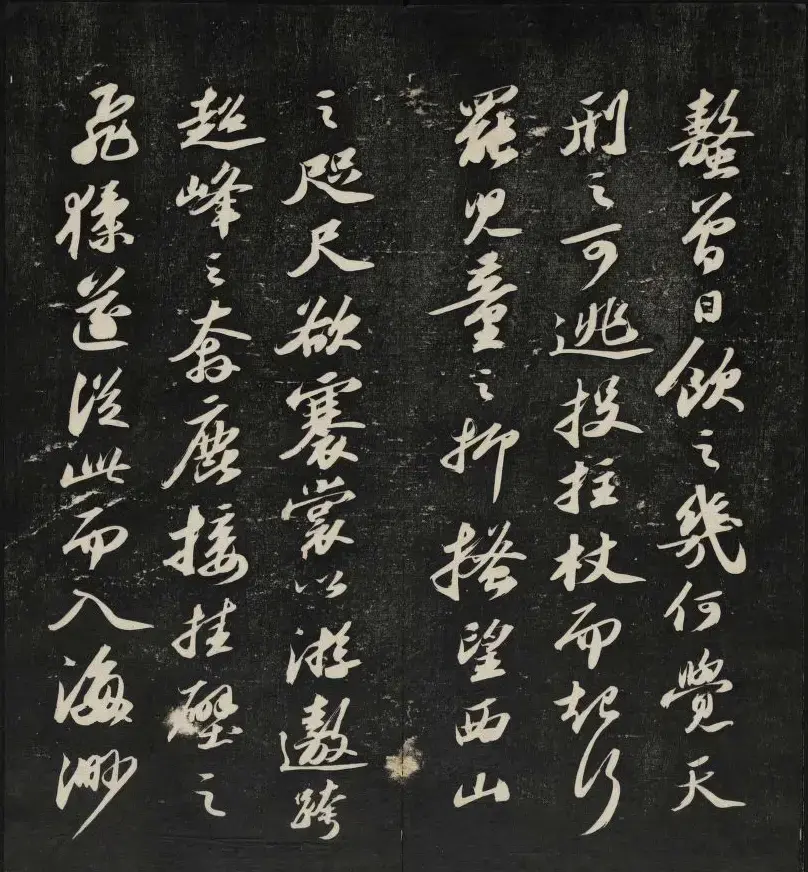 螯曾日飲之幾何覺天
刑之可逃投拄杖而起行
罷兒童之抑搔望西山
之咫尺欲褰裳以游遨跨
超峰之奔鹿接挂壁之
飛猱遂從此而入海渺